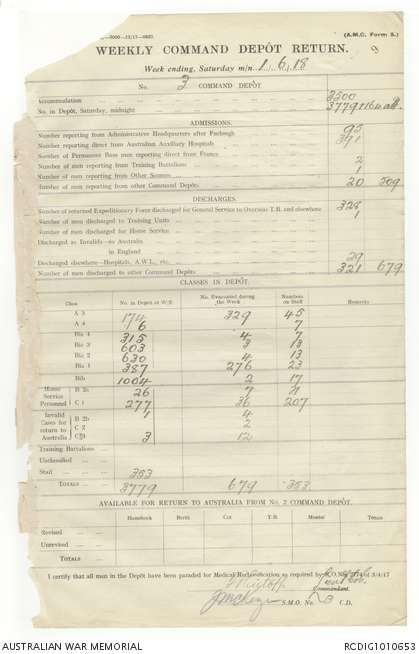 (A.M.C. Form 8.)
WEEKLY COMMAND DEPÔT RETURN. 9
Week ending, Saturday m/n. 1.6.18
No. 3 COMMAND DEPÔT
Accommodation 3500
No. in Depôt, Saturday, midnight 3779
ADMISSIONS.
Number reporting from Administrative Headquarters after Furlough 95
Number reporting direct from Australian Auxiliary Hospitals 391
Number of Permanent Base men reporting direct from France
Number of men reporting from Training Battalions 2
Number of men reporting from Other Sources 1
Number of men reporting from other Command Depôts 20 509
DISCHARGES.
Number of returned Expeditionary Force discharged for General Service to Overseas T.B. and elsewhere 328
Number of men discharged to Training Units 1
Number of men discharged for Home Service
Discharged as Invalids—to Australia
in England
Discharged elsewhere—Hospitals, A.W.L., etc. 29
Number of men discharged to other Command Depôts 321 679
CLASSES IN DEPOT.
Class No. in Depot at W/E No. Evacuated during the Week Numbers on Staff Remarks
A 3 174 329 45
A 4 6 7
B1a 4 315 4 7
B1a 3 603 3 13
B1a 2 630 4 13
B1a 1 387 276 23
B1b 1004 2 17
Home Service Personnel B 2a 26 7 21
C 1 277 36 207
Invalid Cases for return to Australia B 2b 1 4
C 2 2
C 3 3 12
Training Battalions
Unclassified
Staff 353
TOTALS 3779 679 353
AVAILABLE FOR RETURN TO AUSTRALIA FROM No. 2 COMMAND DEPÔT.
Homeboek Berth Cot T.B. Mental
Revised
Unrevised
TOTALS
I certify that all men in the Depôt have been paraded for Medical Reclassification as required by
Commandant
S.M.O. No. 3 C.D.
AUSTRALIAN WAR MEMORIAL
RCDIG1010653